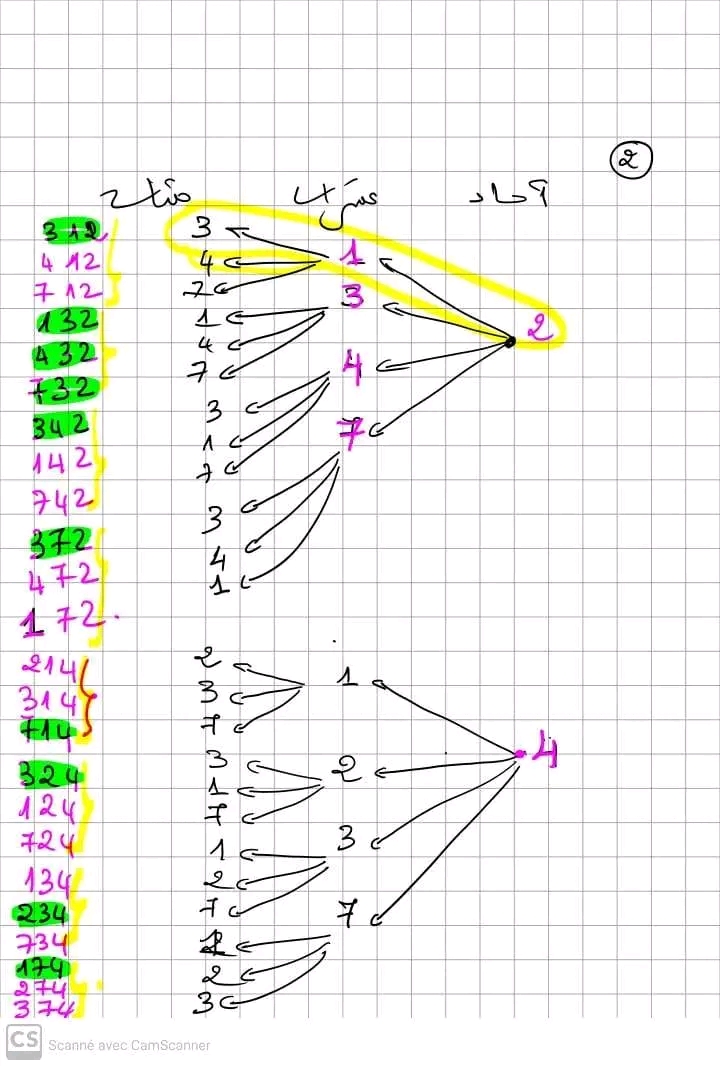 2
آحاد عشرات مئات
312 3 1 2
412 4
712 7
132 1 3
432 4
732 7
342 3 4
142 1
742 7
372 3 7
472 4
172 1
214 2 1 4
314 3
714 7
324 3 2
124 1
724 7
134 1 3
234 2
734 7
174 1 7
274 2
374 3
CS Scanné avec CamScanner